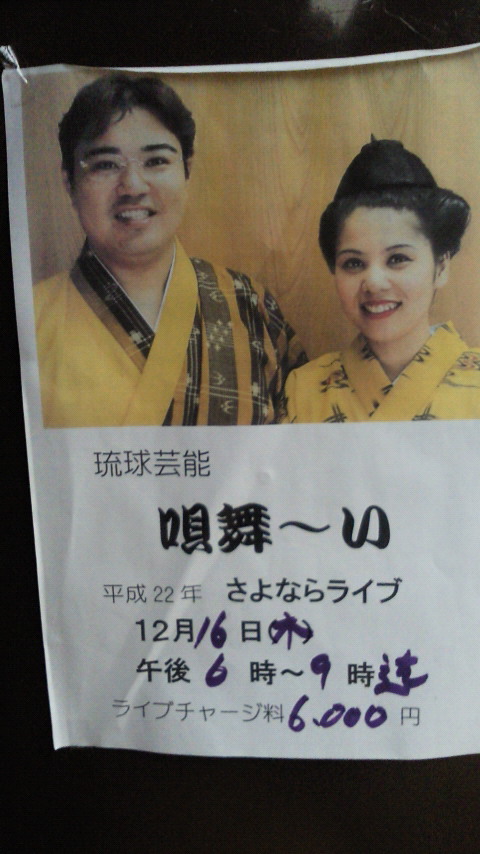 琉球芸能
唄舞～い
平成22年 さよならライブ
12月16日(木)
午後 6 時～9 時迄
ライブチャージ料6.000 円